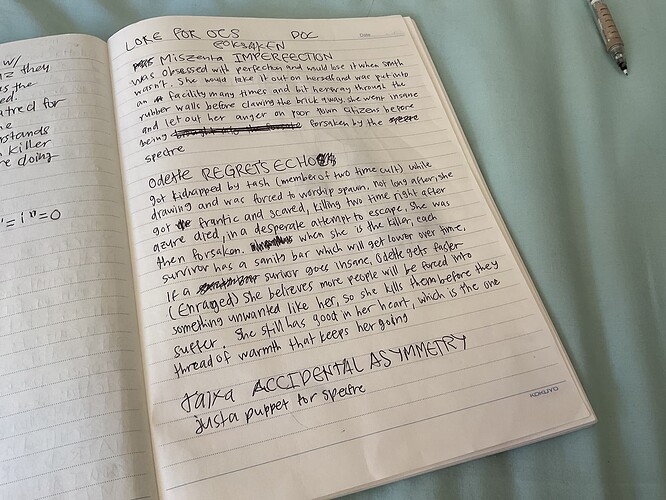 w/
they
s the
ed.
tred for
ne
rstands
killer
re doing
"= i "= 0
LORE FOR OCS DOC
FORSAKEN
Date
Miszenta IMPERFECTION
was obsessed with perfection and would lose it when smth
wasn't. She would take it out on herself and was put into
an facility many times and bit her way through the
rubber walls before clawing the brick away. she went insane
and let out her anger on poor town citizens before
being forsaken by the
spectre
Odette REGRETS ECHO
got kidnapped by task (member of two time cult) while
drawing and was forced to worship spawn. not long after, she
got frantic and scared, killing two time right after
azure died, in a desperate attempt to escape, she was
then forsaken. when she is the killer, each
survivor has a sanity bar which will get lower over time,
If a survior goes insane, Odette gets faster
(Enraged) She believes more people will be forced into
something unwanted like her, so she kills them before they
suffer. She still has good in her heart, which is the one
thread of warmth that keeps her going
ACCIDENTAL ASYMMETRY
just a puppet for spectre
KOKUYO